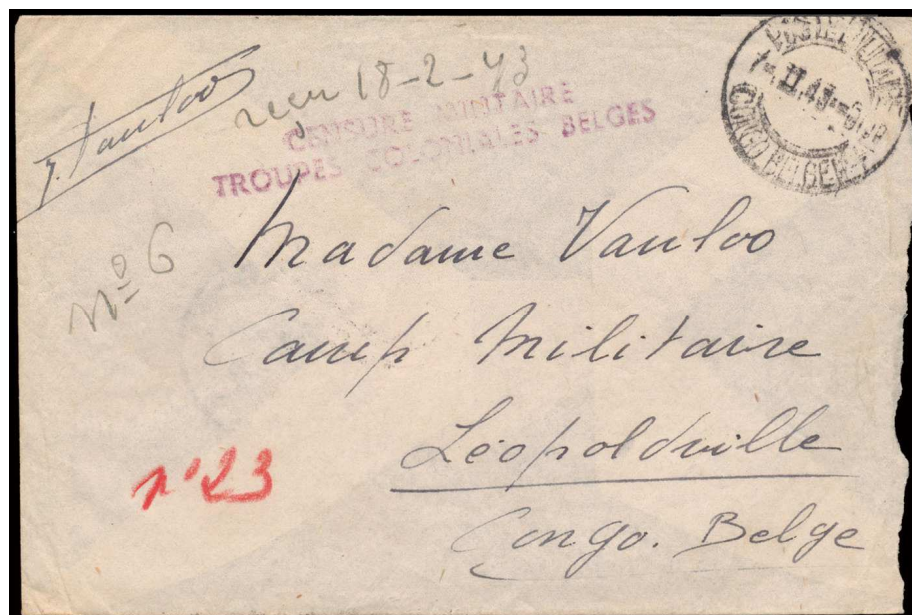 J. Vanloo
reçu 18-2-43
CENSURE MILITAIRE
TROUPES COLONIALES BELGES
POSTE MILITAIRE
II.43
CONGO BELGE
Nº 6
Madame Vanloo
Camp Militaire
Léopoldville
Congo. Belge
n° 23